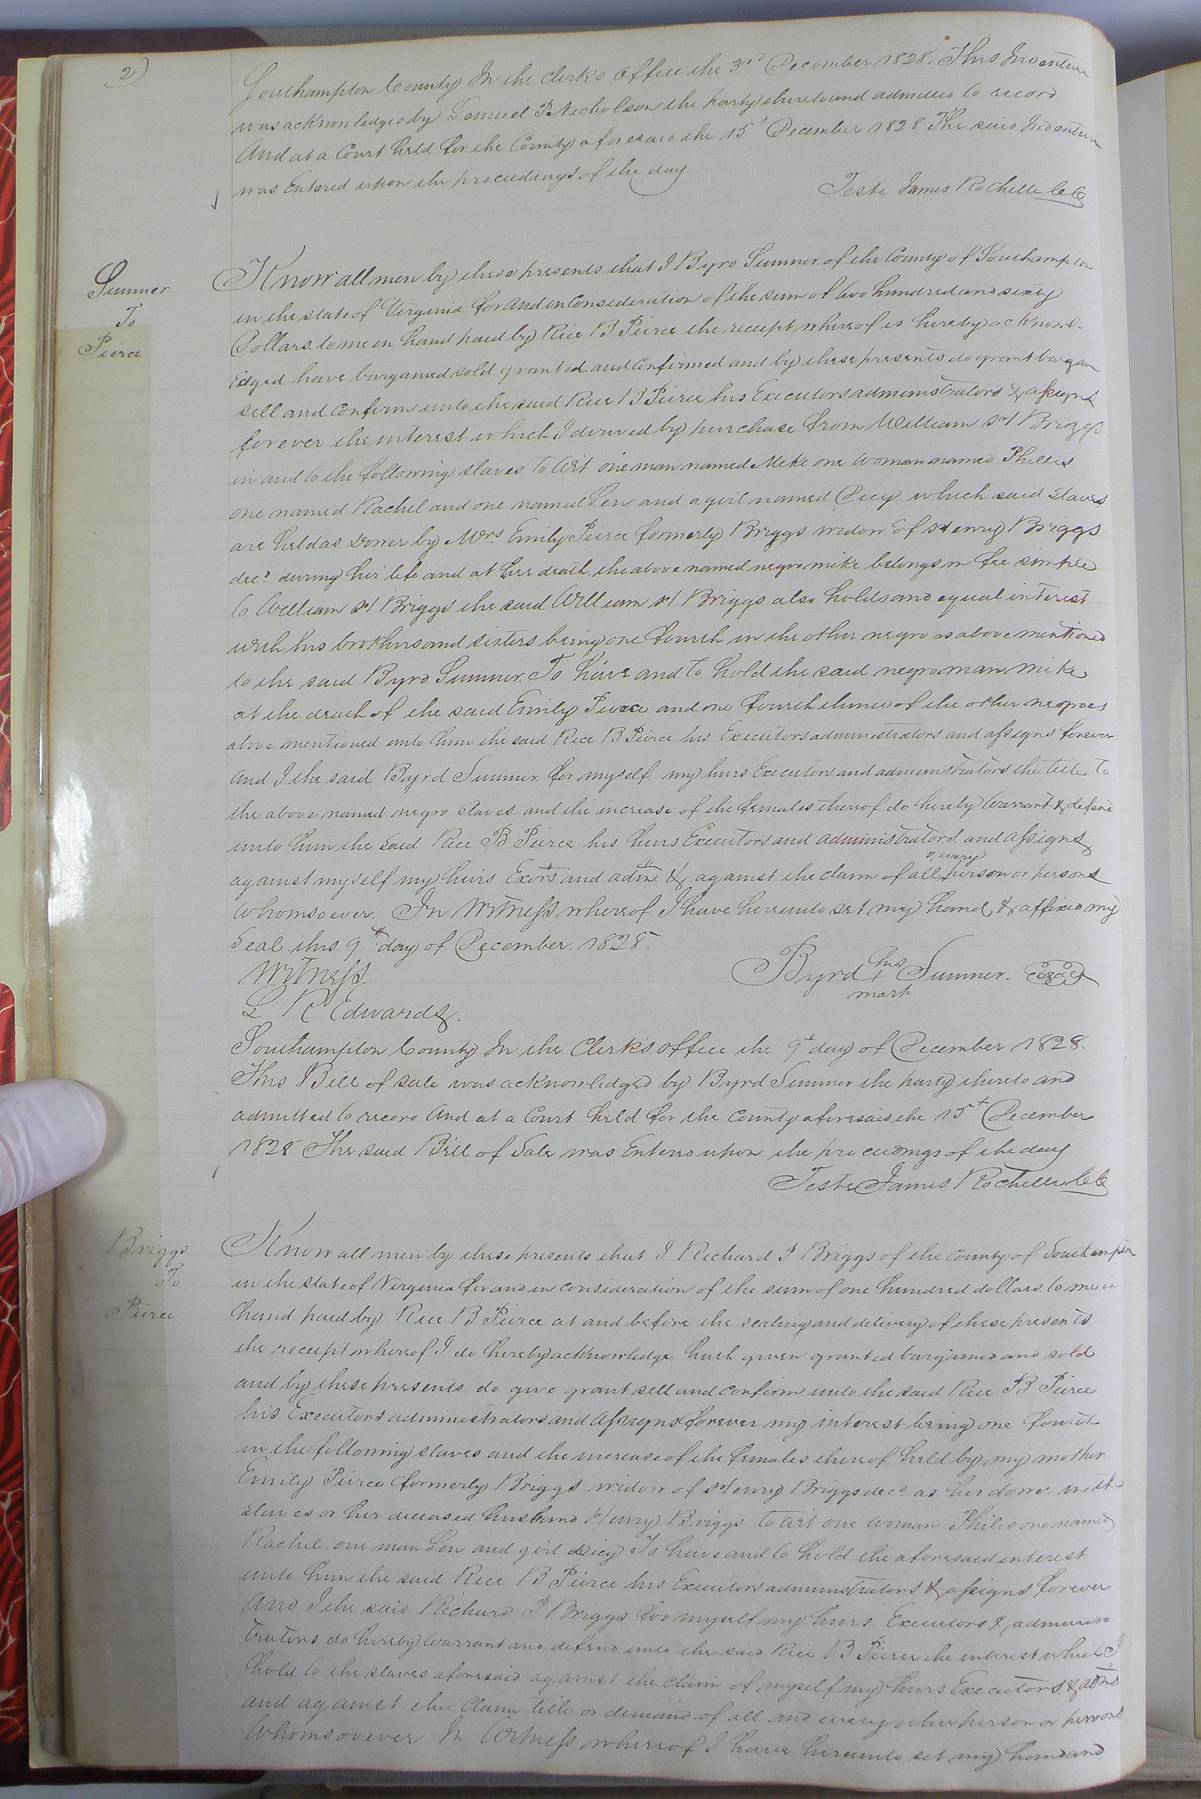 2)
Southampton County In the Clerks Office the 3rd December 1828. This Indenture
was acknowledged by Lemuel P Nicholson the party thereto and admitted to record
And at a Court held for the County aforesaid the 15th December 1828 The said Indenture
was Entered upon the proceedings of the day
Teste James Rochelle CC
Sumner
To
Pierce
Know all men by these presents that I Byrd Sumner of the County of Southampton
in the state of Virginia for and in Consideration of the sum of two hundred and sixty
Dollars to me in hand paid by Rice B Pierce the receipt whereof is hereby acknowl-
edged have bargained sold granted and confirmed and by these presents do grant bargain
sell and confirm unto the said Rice B Pierce his Executors administrators & assigns
forever the interest which I derived by purchase from William H Briggs
in and to the following slaves to wit one man named Mike one woman named Phillis
one named Rachel and one named Len and a girl named Dicy which said slaves
are held as dower by Mrs Emily Pierce formerly Briggs widow of Henry Briggs
decd during her life and at her death the above named negro mike belongs in fee simple
to William H Briggs the said William H Briggs also holds and equal interest
with his brothers and sisters being one fourth in the other negroes above mentioned
to the said Byrd Sumner. To have and to hold the said negro man mike
at the death of the said Emily Pierce and one fourth of the other negroes
above mentioned unto him the said Rice B Pierce his Executors administrators and assigns forever
And I the said Byrd Sumner for myself my heirs Executors and administrators the title to
the above named negro slaves and the increase of the females thereof do hereby warrant & defend
unto him the said Rice B Pierce his heirs Executors and administrators and assigns
against myself my heirs Exors and adm & against the claim of all & every person or persons
whomsoever. In Witness whereof I have hereunto set my hand & affixed my
Seal this 9th day of December 1828.
Witness
Byrd his Sumner. Seal
mark
L R Edwards.
Southampton County In the Clerk's office the 9th day of December 1828.
This Bill of sale was acknowledged by Byrd Sumner the party thereto and
admitted to record And at a Court held for the County aforesaid the 15th December
1828 The said Bill of Sale was Entered upon the proceedings of the day
Teste James Rochelle CC
Briggs
To
Pierce
Know all men by these presents that I Richard P Briggs of the County of Southampton
in the state of Virginia for and in consideration of the sum of one hundred dollars to me in
hand paid by Rice B Pierce at and before the sealing and delivery of these presents
the receipt whereof I do hereby acknowledge hath given granted bargained and sold
and by these presents do give grant sell and confirm unto the said Rice B Pierce
his Executors administrators and assigns forever my interest being one fourth
in the following slaves and the increase of the females thereof held by my mother
Emily Pierce formerly Briggs widow of Henry Briggs decd as her dower in the
slaves or her deceased husband Henry Briggs to wit one woman Philis one named
Rachel one man Len and girl Dicy To have and to hold the aforesaid interest
unto him the said Rice B Pierce his Executors administrators & assigns forever
And I the said Richard P Briggs for myself my heirs Executors & adminis=
trators do hereby warrant and defend unto the said Rice B Pierce the interest which I
hold to the slaves aforesaid against the claim of myself my heirs Executors & adms
and against the claim title or demand of all and every other person or persons
Whomsoever In Witness whereof I have hereunto set my hand and